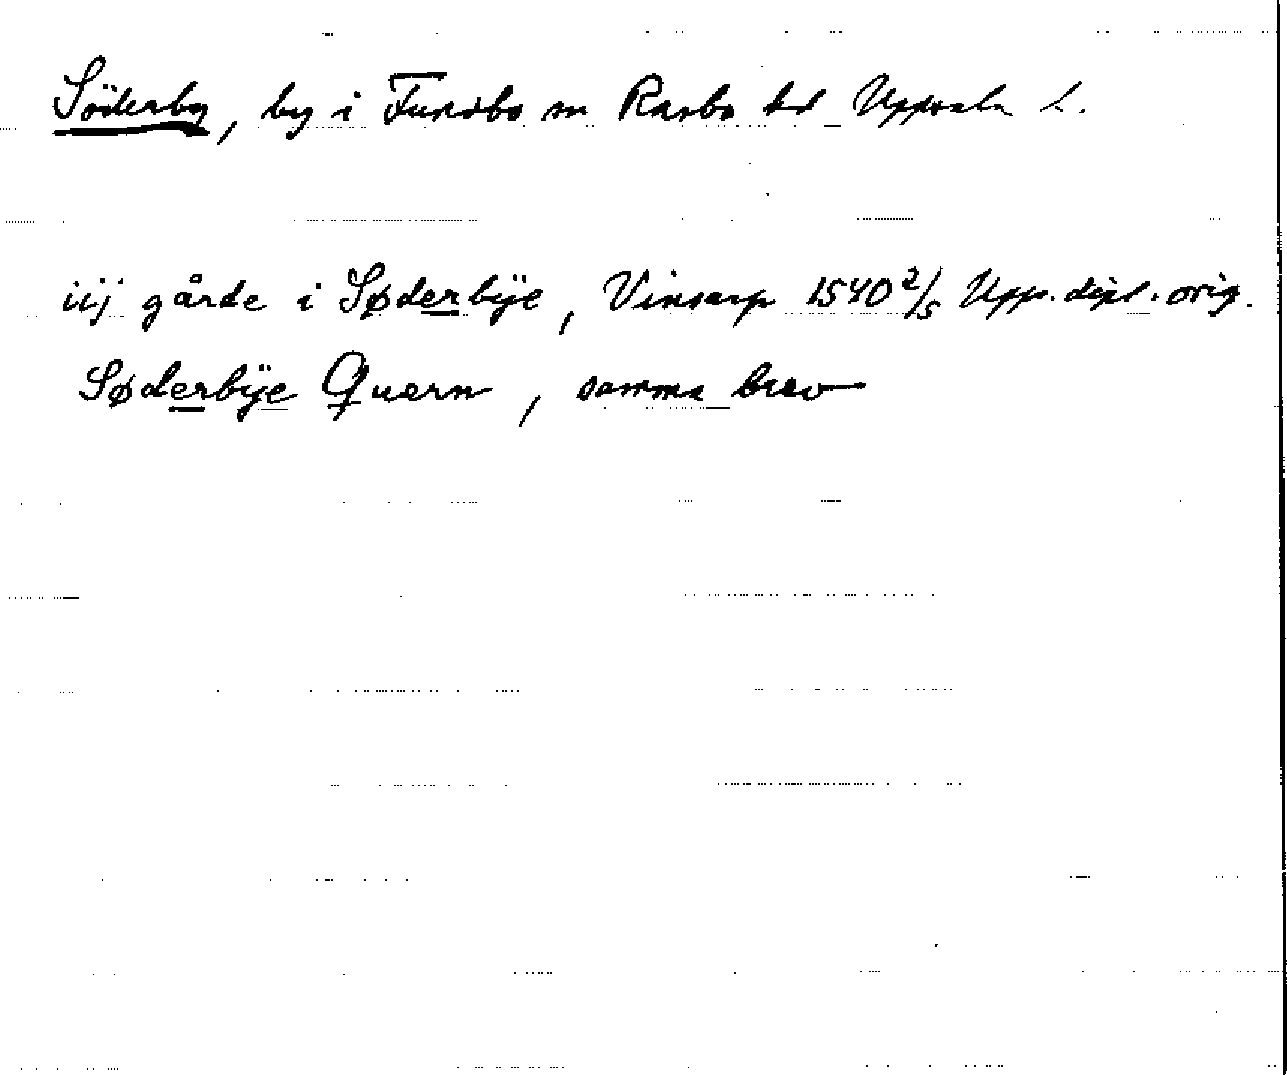 Söderby, by i Funbo sn Rasbo hd Uppsala l.
iiij gårde i Søderbÿe, Vinsarp 1540 2/5 Upps. dipl. orig.
Søderbÿe Quern, samma brev